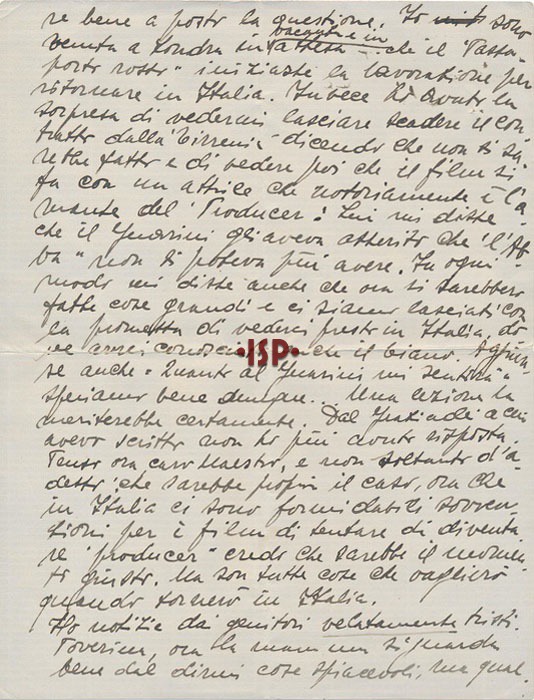 re bene a posto la questione. Io sono
vacante e in
venuta a Londra in attesa che il "Passa-
porto rosso" iniziasse la lavorazione per
ritornare in Italia. Invece ho avuto la
sorpresa di vedermi lasciare scadere il con
tratto dalla "Tirrenia" dicendo che non si sa
rebbe fatto e di vedere poi che il film si
fa con un attrice che notoriamente è l'a
mante del "Producer"! Lui mi disse
che il Guarini gli aveva asserito che "l'Ab
ba" non si poteva più avere. In ogni
modo mi disse anche che ora si sarebbero
fatte cose grandi e ci siamo lasciati con
la promessa di vederci presto in Italia, do
ve avrei che il Ciano. Aggiun
se anche "Quanto al Guarini mi sentirà"
speriamo bene dunque... Una lezione la
meriterebbe certamente. Dal a cui
avevo scritto non ho più avuto risposta.
Penso ora caro Maestro, e non soltanto d'a
desso, che sarebbe proprio il caso, ora che
in Italia ci sono formidabili sovven-
zioni per i film di tentare di diventa
re "producer" credo che sarebbe il momen
to giusto. Ma son tutte cose che vaglierò
quando tornerò in Italia.
Ho notizie dai genitori velatamente tristi.
Poverina, ora la mamma si guarda
bene dal dirmi cose spiacevoli, ma qual
ISP